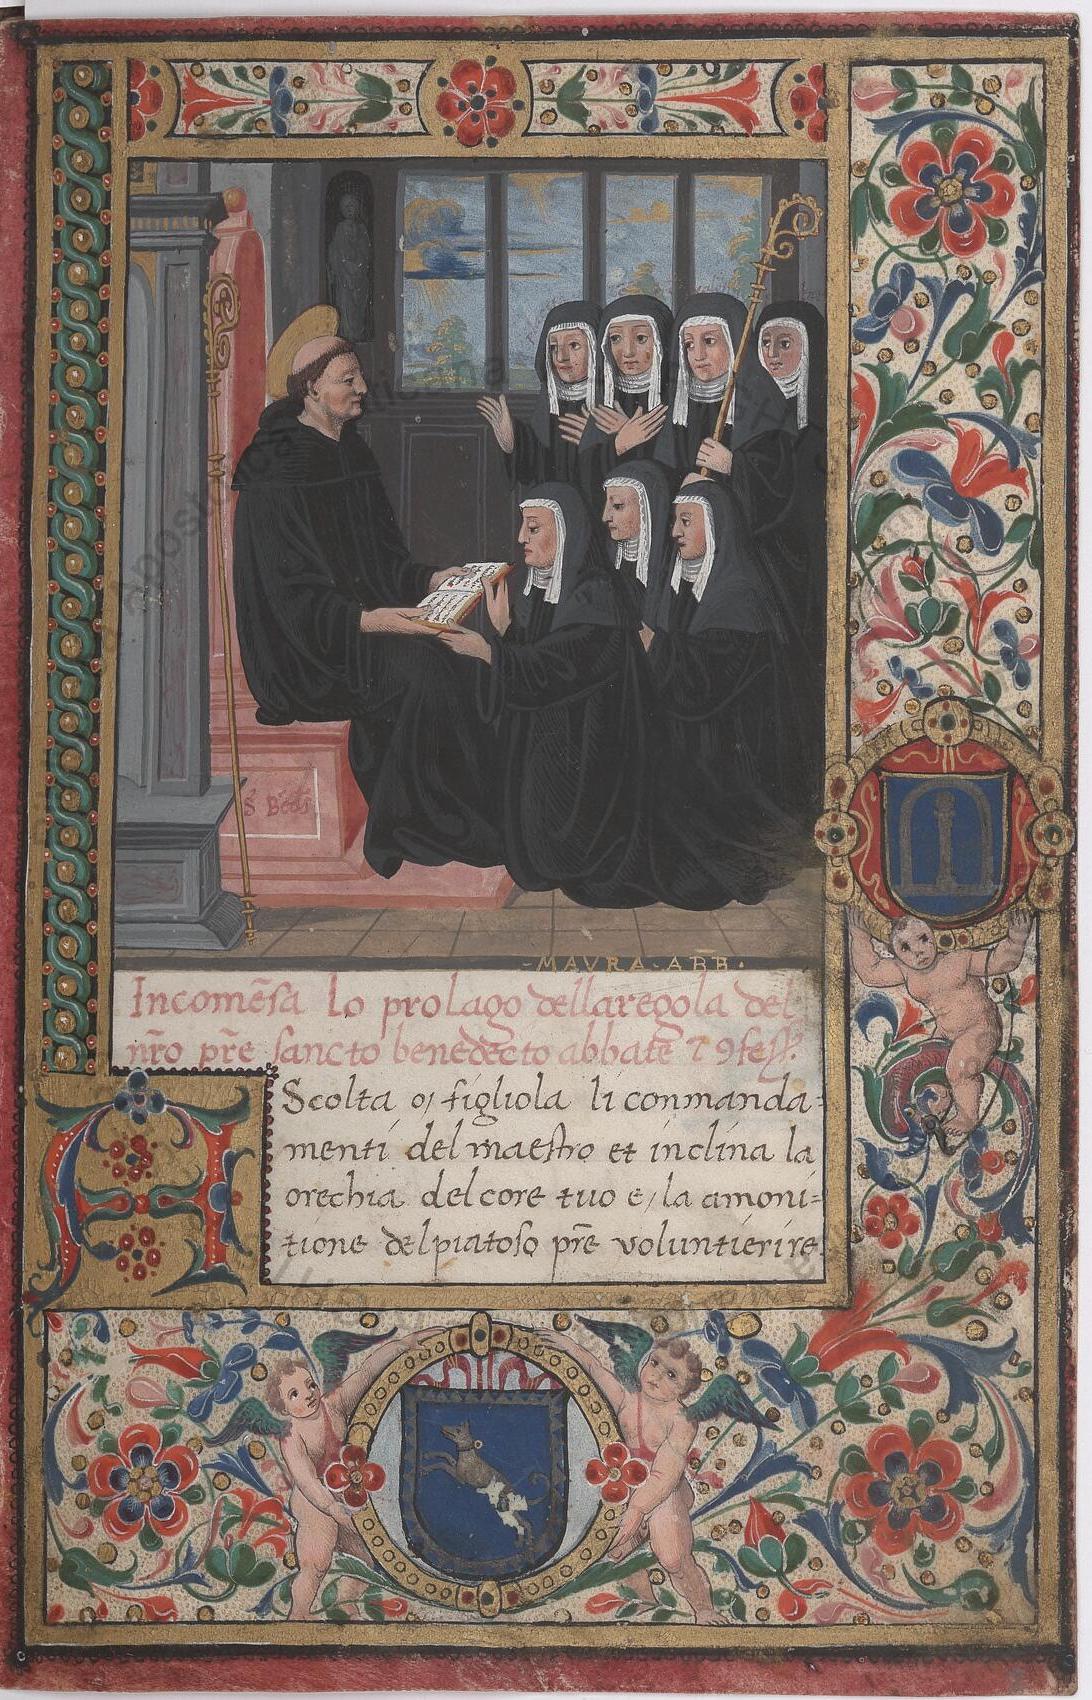 S Bēdi
MAVRA·ABB̄·
Incomēsa lo prolago della regola del
nr̄o pr̄e sancto benedecto abbate 7 9fess.
AScolta o/ figliola li conmanda=
menti del maestro et inclina la
orechia del core tuo e/ la amoni=
tione del piatoso pr̄e voluntierire